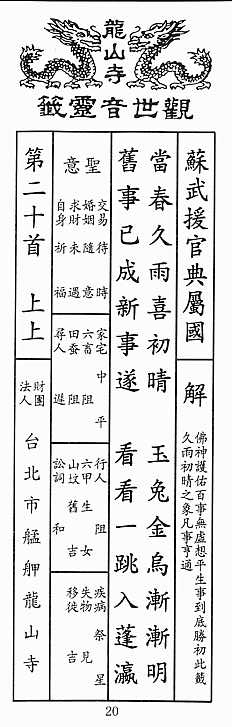 龍山寺
觀世音靈籤
蘇武援官典屬國
解
佛神護佑百事無虛想平生事到底勝初此籤
久雨初晴之象凡事亨通
當春久雨喜初晴 玉兔金烏漸漸明
舊事已成新事遂 看看一跳入蓬瀛
聖意
交易待時
婚姻隨意
求財未遇
自身祈福
家宅中平
六畜阻
田蚕阻
尋人遲
行人阻
六甲生女
山坟舊吉
訟詞和
疾病祭星
失物見
移徙吉
第二十首 上上
財團
法人
台北市艋舺龍山寺
20